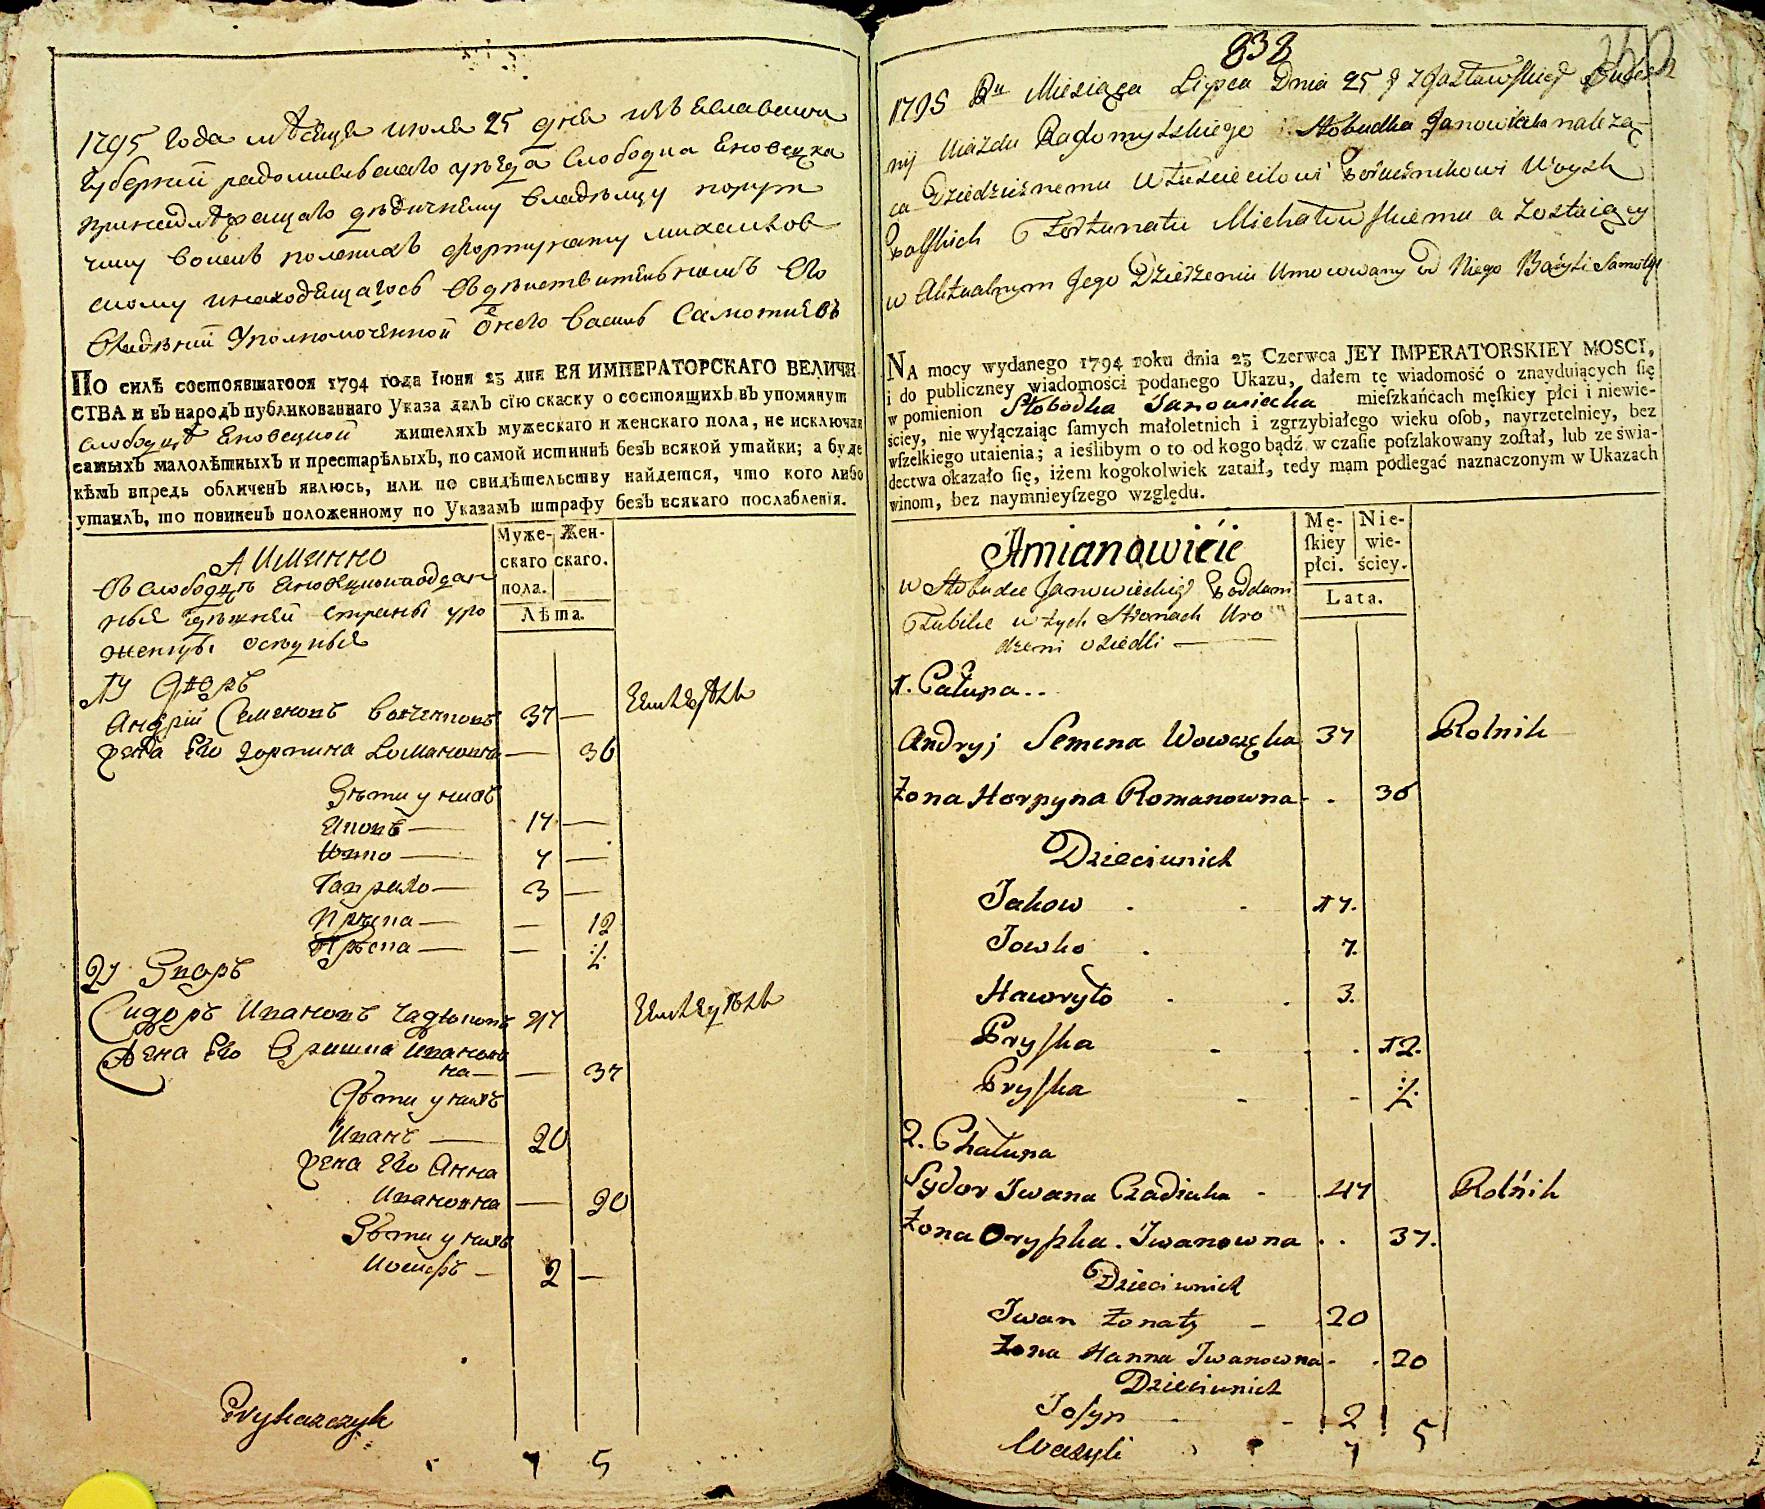 1795 года мѣсяца июля 25 дня изъяславской
Губерній радомисльскаго уѣзда Слободка Яновецка
принадлежащаго дѣдичнему владѣльцу поруч
чику войскъ полскихъ фортунату михалков
скому и находящагось въ действительномъ его
владѣній Уполномоченной отнего Василь Самотиевъ
ПО силѣ состоявшагося 1794 года Іюня 23 дня ЕЯ ИМПЕРАТОРСКАГО ВЕЛИЧЕ
СТВА и въ народъ публикованнаго Указа далъ сїю скаску о состоящихъ въ упомянут
слободцѣ Яновецкой жителяхъ мужескаго и женскаго пола, не исключая
самыхъ малолѣтныхъ и престарѣлыхъ, по самой истиннѣ безъ всякой утайки; а буде
кѣмъ впредь обличенъ явлюсь, или по свидѣтельству найдется, что кого либо
утаилъ, то повиненъ положенному по Указамъ штрафу безъ всякаго послабленїя.
Муже- Жен-
скаго скаго.
пола.
Лѣта.
А Имянно
въ слободцѣ подан
ные здѣшней страны уро
женцы оседлые
1й Дворъ
Андрій Семеновъ 37 —
жена его Горпина Романовна — 36
Дѣти у нихъ
Яковъ — 17 —
Юзко — 7 —
Гаврило — 3 —
Приска — — 12
Приска — — ½
2й Дворъ
Сидоръ Ивановъ Чадюковъ 47
Жена его Оришка Иванов
на — — 37
Дѣти у нихъ
Иванъ — 20
жена его Анна
Ивановна — 20
Дѣти у нихъ
Иосифъ — 2 —
Prykazczyk
7 5
838
1795 Ru Miesiąca Lipca Dnia 25 z Zasławskiey Guber
nij Uiazdu Radomyslskiego Słobudka Janowicka należą-
ca Dziedzicznemu Właścicielowi Porucznikowi Woysk
Polskich Fortunatu Michałowskiemu a zostaiący
w Aktualnym Jego Dzierzeniu Umocowany od Niego Bazyli Samoty
NA mocy wydanego 1794 roku dnia 23 Czerwca JEY IMPERATORSKIEY MOSCI,
i do publiczney wiadomości podanego Ukazu, dałem tę wiadomość o znayduiących się
w pomienion Słobodka Janowiecka mieſzkańcach męſkiey płci i niewie-
ściey, nie wyłączaiąc ſamych małoletnich i zgrzybiałego wieku oſob, nayrzetelnicy, bez
wſzelkiego utaienia; a ieślibym o to od kogo bądź w czaſie poſzlakowany zoſtał, lub ze świa-
dectwa okazało się, iżem kogokolwiek zataił, tedy mam podlegać naznaczonym w Ukazach
winom, bez naymnieyſzego względu.
Mę- Nie-
ſkiey wie-
płci. ściey.
Lata.
Amianowićie
w Słobudce Janowieckiey Poddani
w tych Stronach Uro
dzeni osiedli
1. Całupa..
Andryj Semena Wowczęka 37 Rolnik
Żona Horpyna Romanowna . 36
Dzieciunich
Jakow . . 17.
Jowko . . 7.
Hawryło . . 3.
Pryſka . . 12.
Pryſka . . ½.
2. Chałupa
Sydor Iwana Czadiuka . 47 Rolnik
Żona Oryſzka. Iwanowna . . 37.
Dzieciunich
Iwan Żonaty . 20
Żona Hanna Iwanowna . 20
Dzieciunich
Josyp . 2
Wasyli 7 5